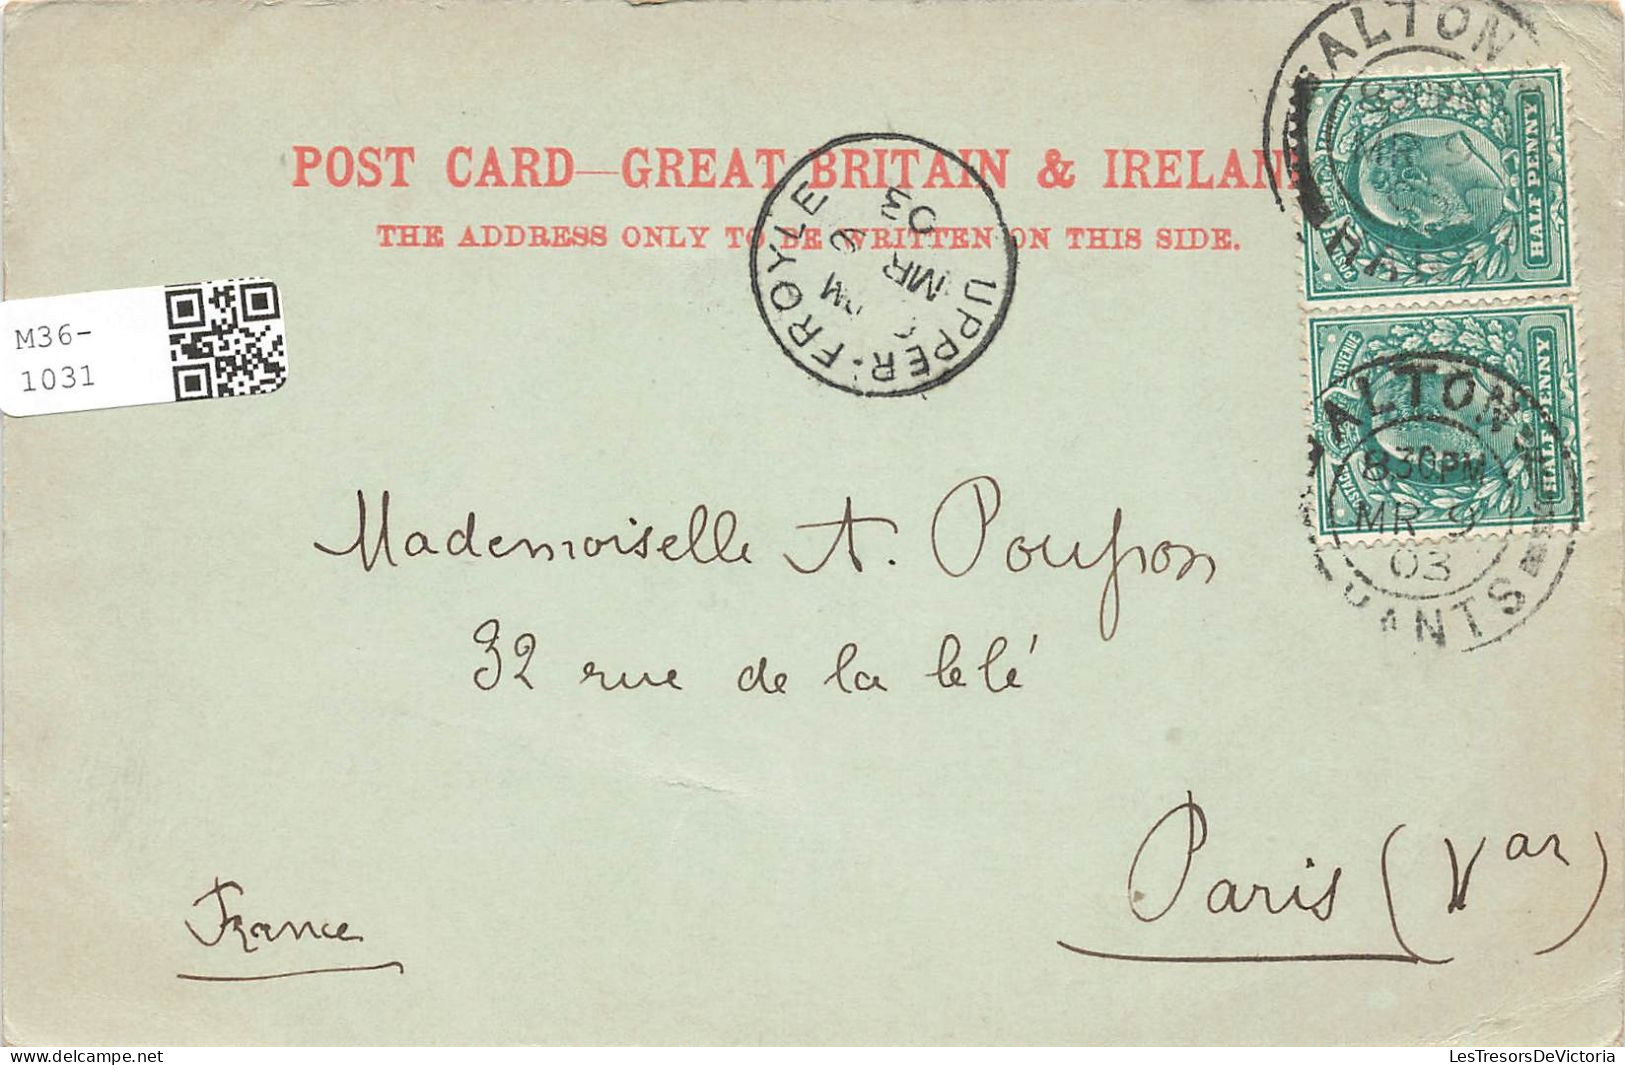 POST CARD—GREAT BRITAIN & IRELAN
THE ADDRESS ONLY TO BE WRITTEN ON THIS SIDE.
UPPER-FROYLE
PM
MR 9
03
ALTON
830PM
MR 9
03
HALF PENNY
HALF PENNY
ALTON
830PM
MR 9
03
HANTS
M36-
1031
Mademoiselle A. Poupon
32 rue de la
Paris (Var)
France
LesTresorsDeVictoria
delcampe.net